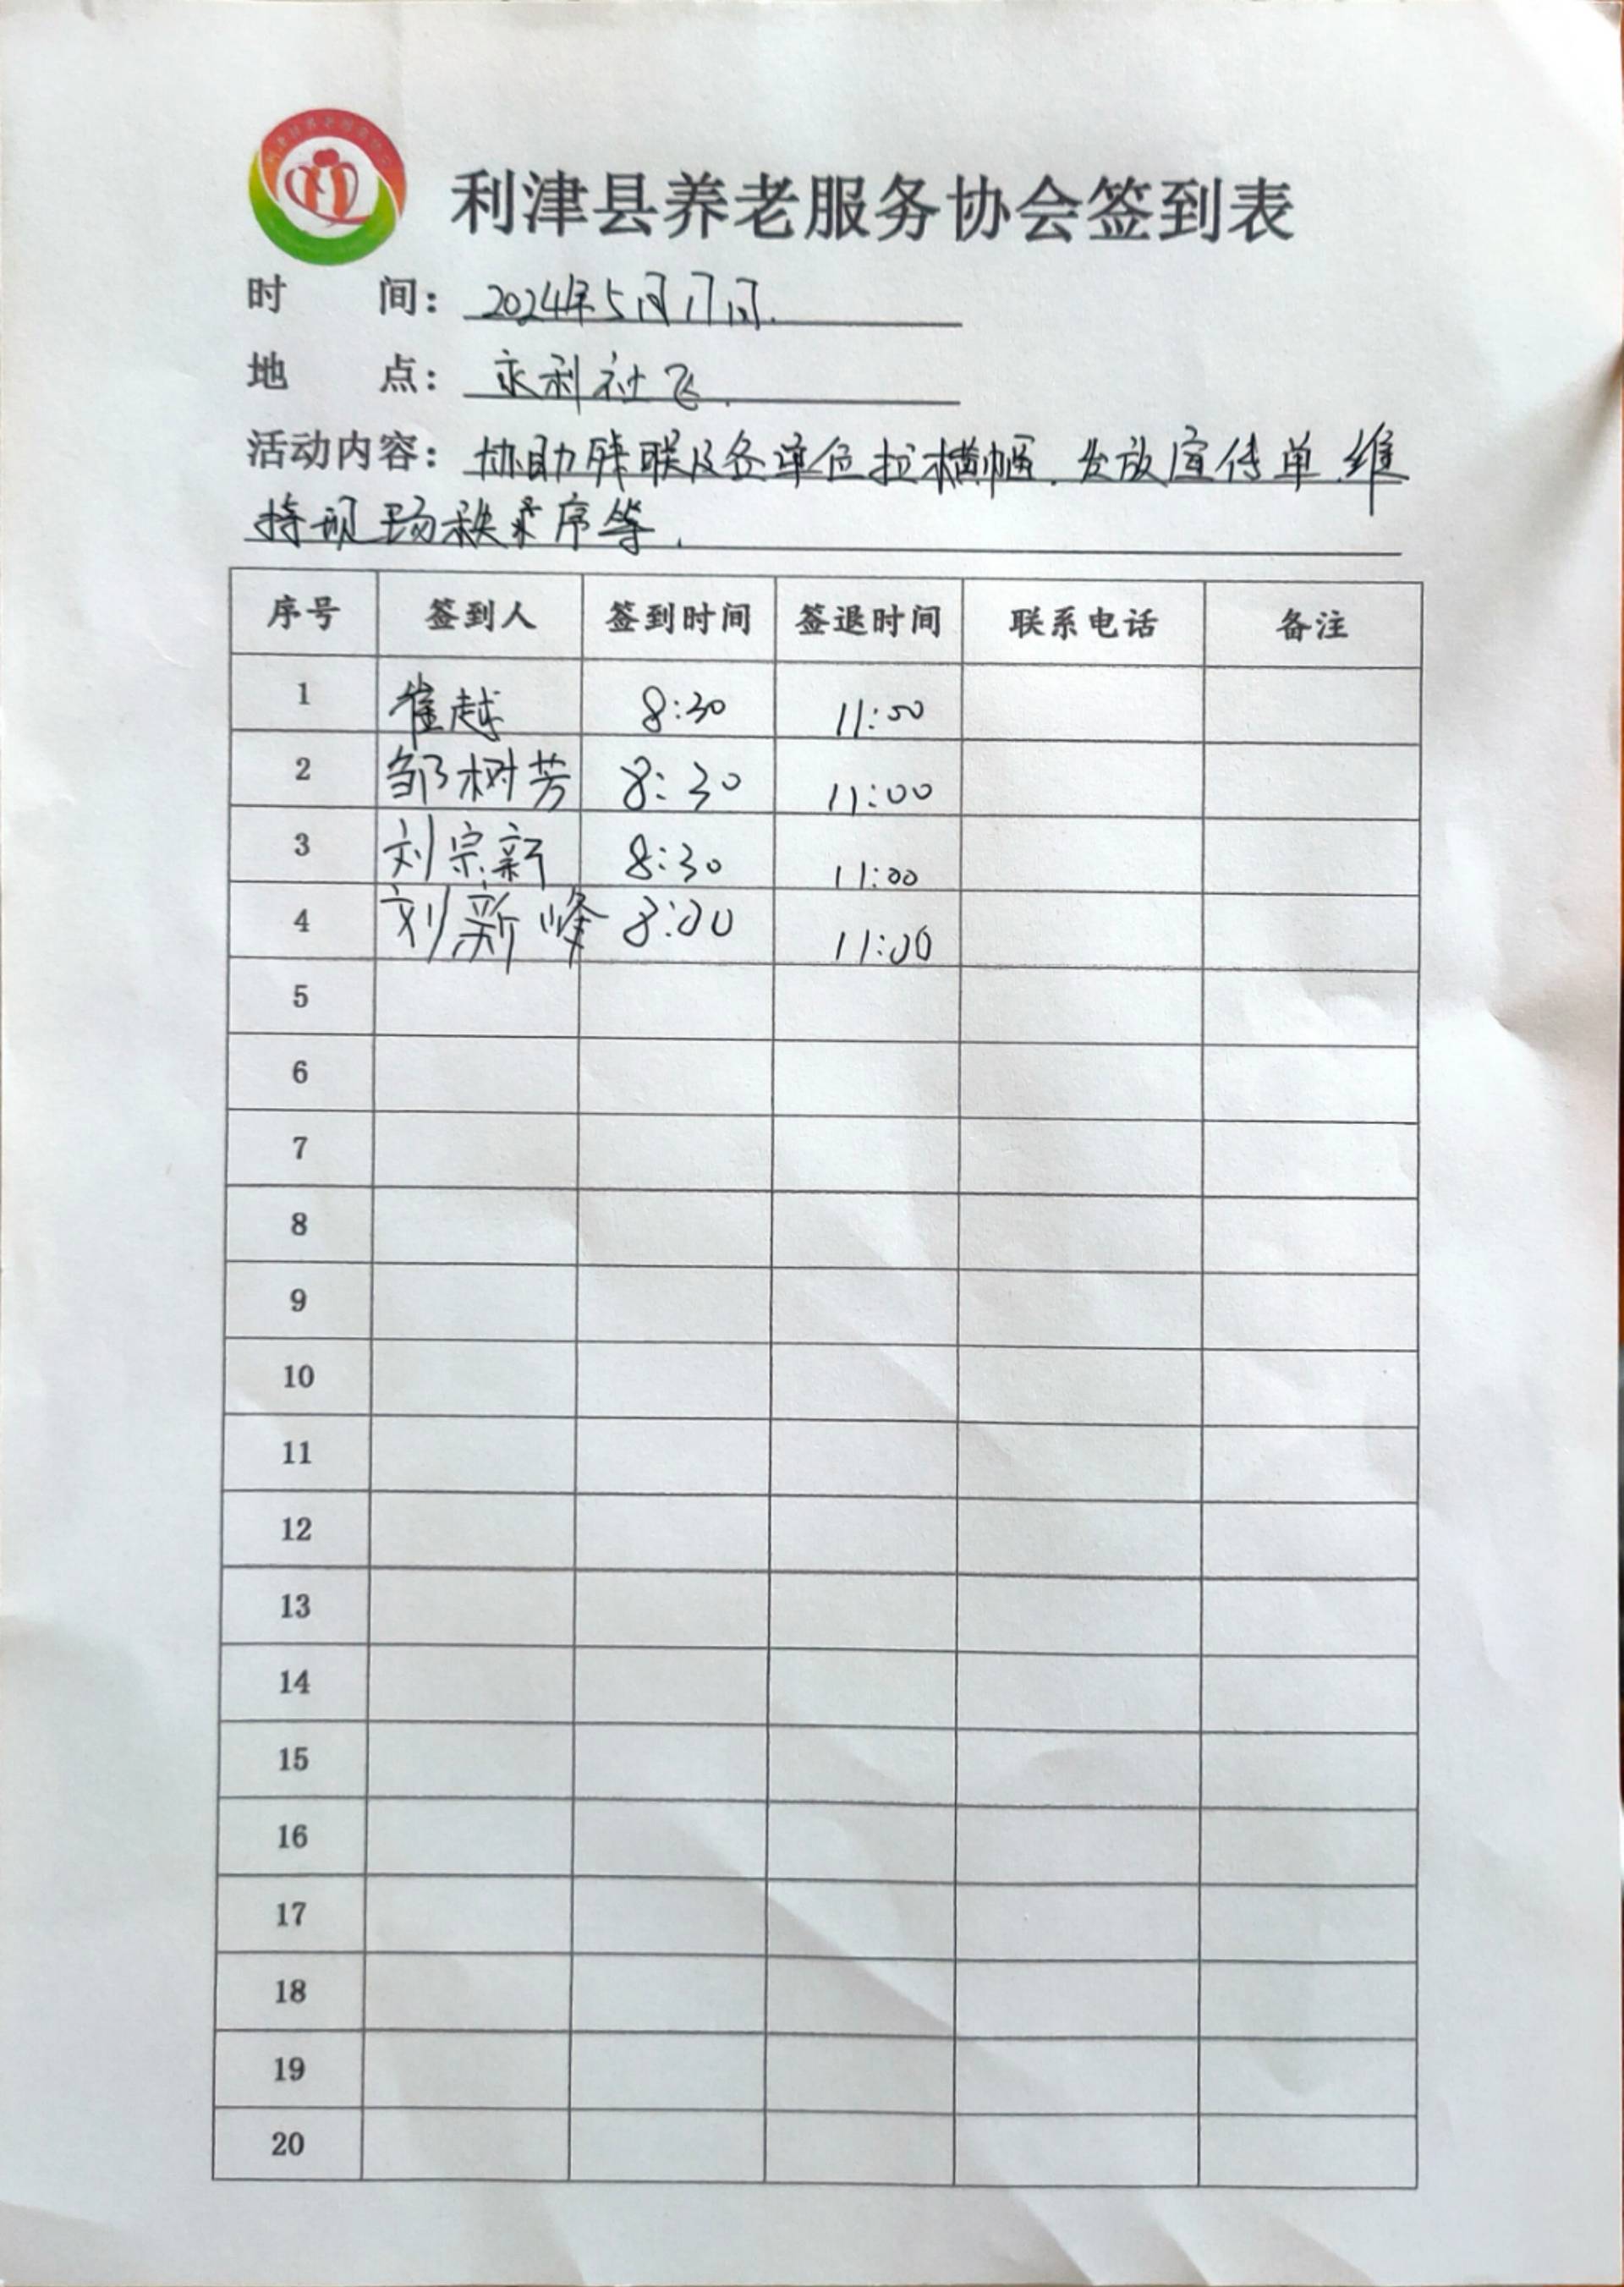 利津县养老服务协会签到表
时 间：2024年5月17日.
地 点：永利社区.
活动内容：协助残联及各单位拉横幅.发放宣传单.维
持现场秩序等.
序号 签到人 签到时间 签退时间 联系电话 备注
1 崔越 8:30 11:00
2 邹树芳 8:30 11:00
3 刘宗新 8:30 11:00
4 刘新峰 8:00 11:00
5
6
7
8
9
10
11
12
13
14
15
16
17
18
19
20